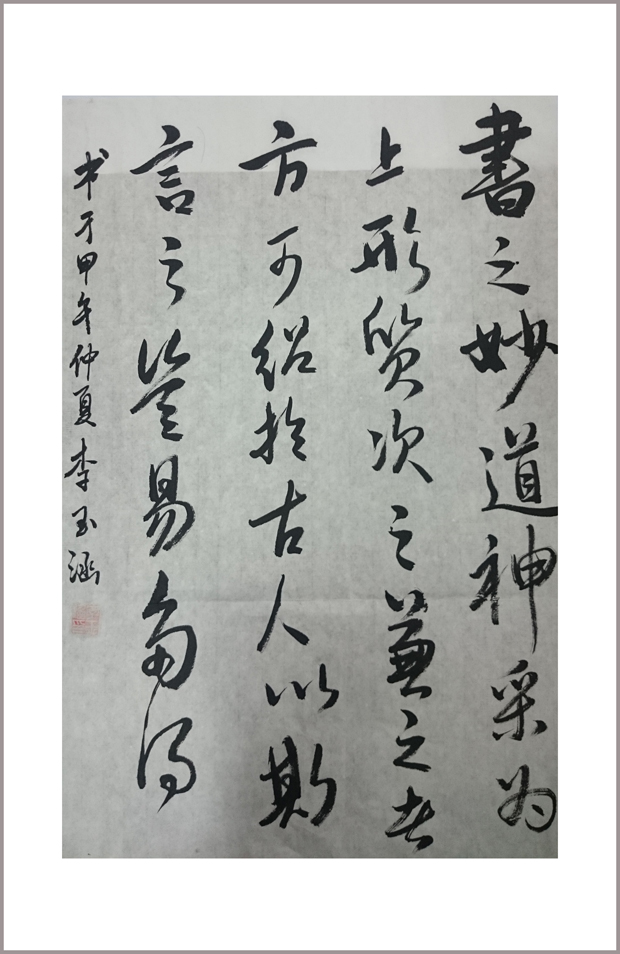 書之妙道神采为
上形質次之兼之者
方可绍於古人以斯
言之豈易多得
书于甲午仲夏李玉涵